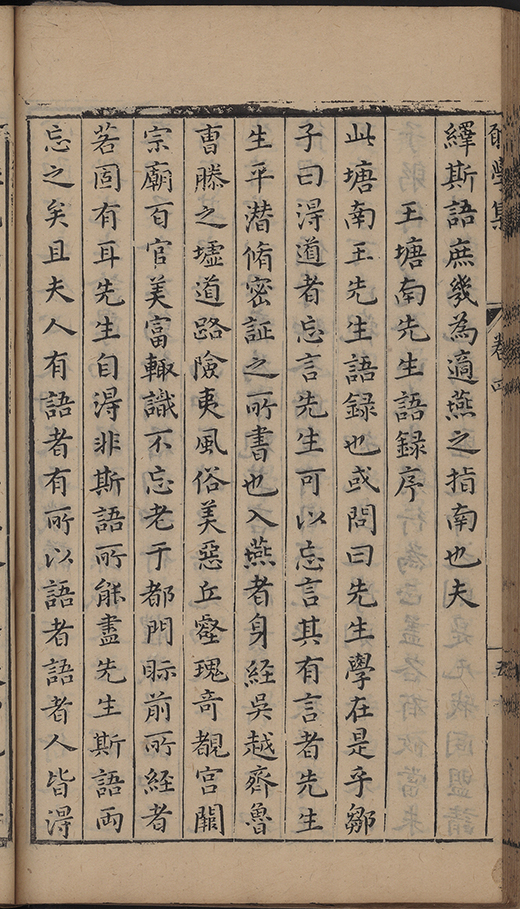 繹斯語庶幾為適燕之指南也夫
王塘南先生語録序
此塘南王先生語録也或問曰先生學在是乎鄒
子曰得道者忘言先生可以忘言其有言者先生
生平潜脩密証之所書也入燕者身經吳越齊魯
曹滕之墟道路險夷風俗美惡丘壑瑰奇覩宮闕
宗廟百官美富輙識不忘老于都門眎前所經者
若固有耳先生自得非斯語所能盡先生斯語両
忘之矣且夫人有語者有所以語者語者人皆得
學集
卷四